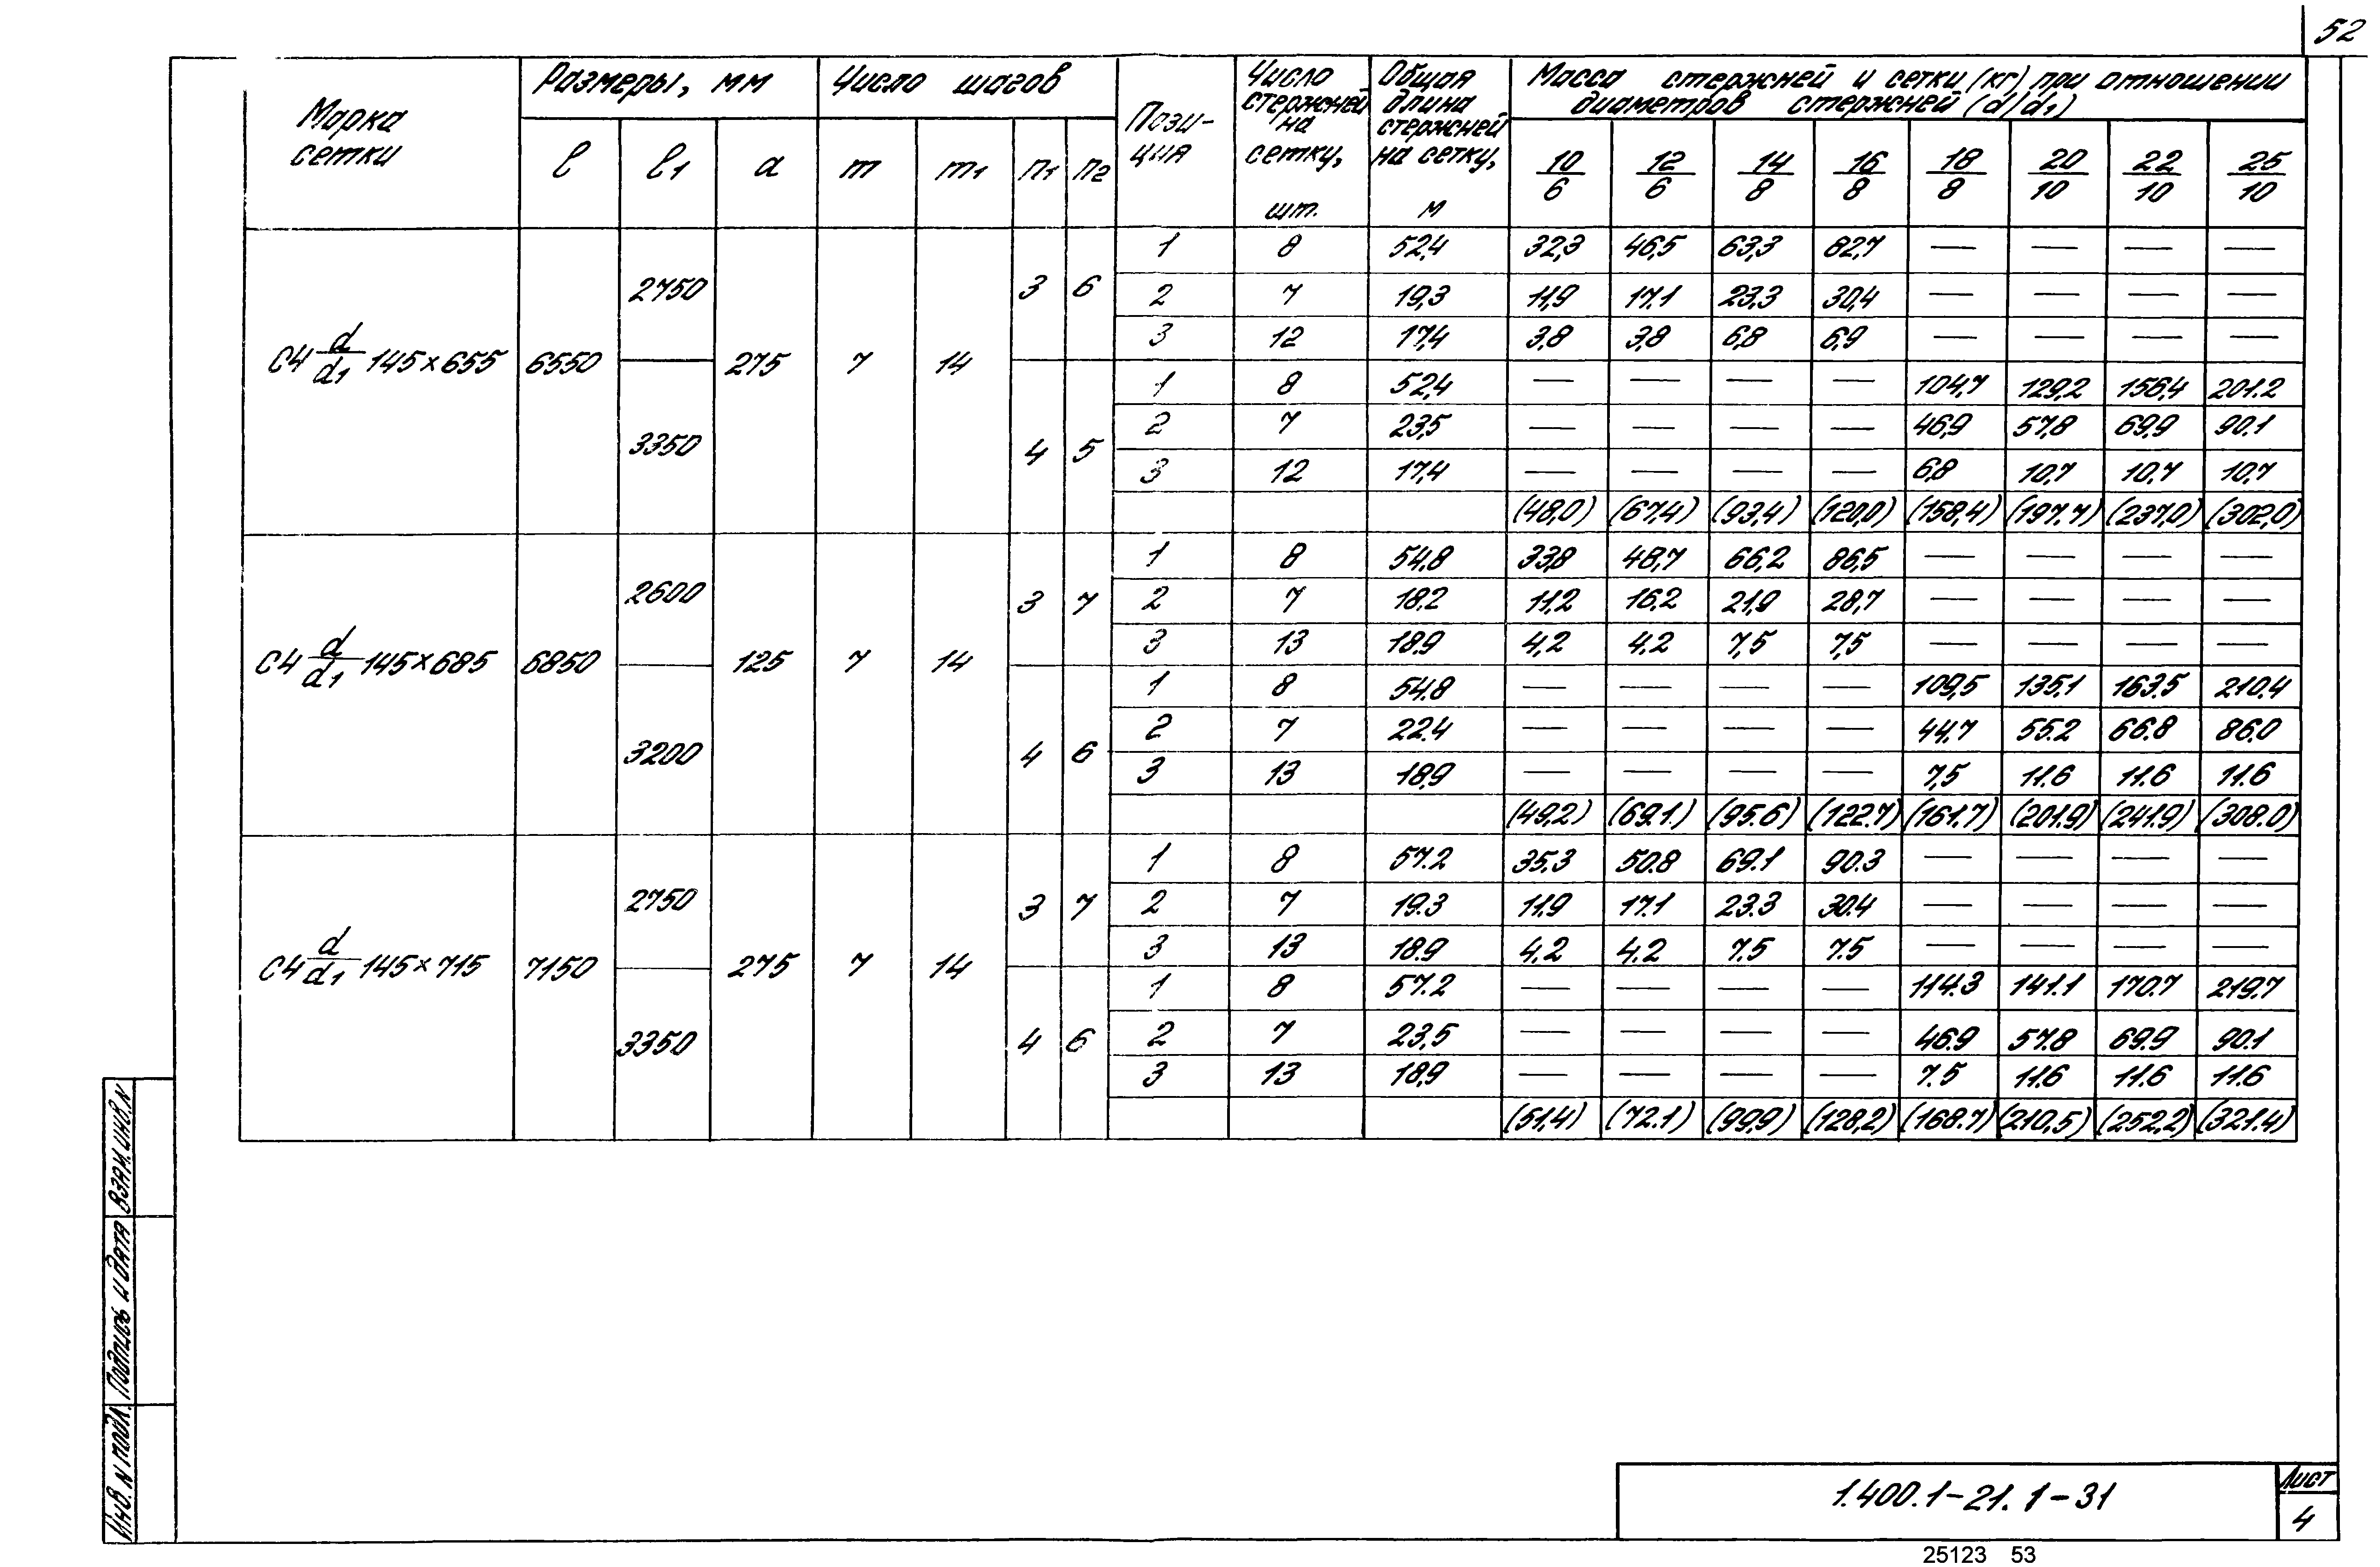 52
Марка сетки | Размеры, мм | Число шагов | Пози-ция | Число стержней на сетку, шт. | Общая длина стержней на сетку, м | Масса стержней и сетки (кг) при отношении диаметров стержней (d/d1)
l | l1 | a | m | m1 | n1 | n2 | 10/6 | 12/6 | 14/8 | 16/8 | 18/8 | 20/10 | 22/10 | 25/10
С4 d/d1 145×655 | 6550 | 2750 | 275 | 7 | 14 | 3 | 6
1 | 8 | 52,4 | 32,3 | 46,5 | 63,3 | 82,7 | — | — | — | —
2 | 7 | 19,3 | 11,9 | 17,1 | 23,3 | 30,4 | — | — | — | —
3 | 12 | 17,4 | 3,8 | 3,8 | 6,8 | 6,9 | — | — | — | —
3350 | 4 | 5
1 | 8 | 52,4 | — | — | — | — | 104,7 | 129,2 | 156,4 | 201.2
2 | 7 | 23,5 | — | — | — | — | 46,9 | 57,8 | 69,9 | 90.1
3 | 12 | 17,4 | — | — | — | — | 6,8 | 10,7 | 10,7 | 10,7
(48,0) | (67,4) | (93,4) | (120,0) | (158,4) | (197.7) | (237,0) | (302,0)
С4 d/d1 145×685 | 6850 | 2600 | 125 | 7 | 14 | 3 | 7
1 | 8 | 54,8 | 33,8 | 48,7 | 66,2 | 86,5 | — | — | — | —
2 | 7 | 18,2 | 11,2 | 16,2 | 21,9 | 28,7 | — | — | — | —
3 | 13 | 18.9 | 4,2 | 4.2 | 7,5 | 7,5 | — | — | — | —
3200 | 4 | 6
1 | 8 | 54.8 | — | — | — | — | 109,5 | 135.1 | 163.5 | 210.4
2 | 7 | 22.4 | — | — | — | — | 44,7 | 55.2 | 66.8 | 86.0
3 | 13 | 18,9 | — | — | — | — | 7,5 | 11.6 | 11.6 | 11.6
(49,2) | (69.1.) | (95.6) | (122.7) | (161.7) | (201.9) | (241.9) | (308.0)
С4 d/d1 145×715 | 7150 | 2750 | 275 | 7 | 14 | 3 | 7
1 | 8 | 57.2 | 35,3 | 50.8 | 69.1 | 90.3 | — | — | — | —
2 | 7 | 19.3 | 11.9 | 17.1 | 23.3 | 30.4 | — | — | — | —
3 | 13 | 18.9 | 4.2 | 4.2 | 7.5 | 7.5 | — | — | — | —
3350 | 4 | 6
1 | 8 | 57.2 | — | — | — | — | 114.3 | 141.1 | 170.7 | 219.7
2 | 7 | 23,5 | — | — | — | — | 46.9 | 57.8 | 69.9 | 90.1
3 | 13 | 18,9 | — | — | — | — | 7.5 | 11.6 | 11.6 | 11.6
(51,4) | (72.1) | (99,9) | (128,2) | (168.7) | (210,5) | (252,2) | (321.4)
Инв. N подл. | Подпись и дата | Взам. инв. N
1.400.1-21.1-31
Лист
4
25123 53